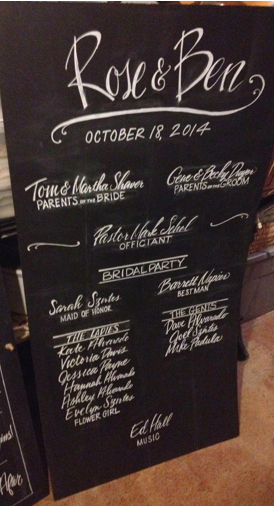 Rose & Ben
OCTOBER 18, 2014
Tom & Martha Shaver
PARENTS OF THE BRIDE
Gene & Becky
PARENTS OF THE GROOM
Pastor Mark
OFFICIANT
BRIDAL PARTY
Sarah
MAID OF HONOR
Barrett Napier
BESTMAN
THE LADIES
Kate Alvarado
Victoria Davis
Jessica Payne
Hannah Alvarado
Ashley Alvarado
Evelyn
FLOWER GIRL
THE GENTS
Dave Alvarado
Joel
Mike Padula
Ed Hall
MUSIC
After